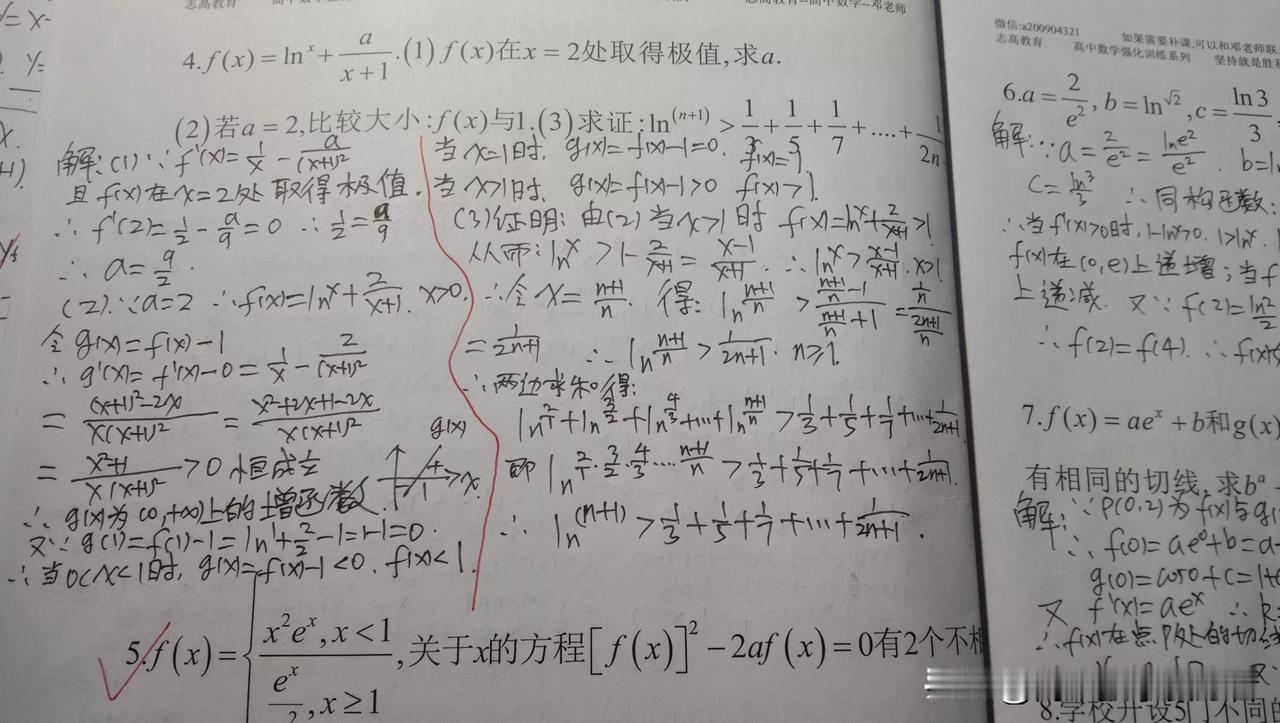 志高教育 高中数学 邓老师
4.f(x)=ln^x+a/(x+1).(1) f(x)在x=2处取得极值,求a.
(2)若a=2,比较大小:f(x)与1.(3)求证:ln^(n+1)>1/3+1/5+1/7+....+1/2n
解:(1)∵f'(x)=1/x-a/(x+1)²
且f(x)在x=2处取得极值.
∴f'(2)=1/2-a/9=0 ∴1/2=a/9
∴a=9/2.
(2)∵a=2 ∴f(x)=ln^x+2/(x+1). x>0.
令g(x)=f(x)-1
∴g'(x)=f'(x)-0=1/x-2/(x+1)²
=((x+1)²-2x)/(x(x+1)²)=(x²+2x+1-2x)/(x(x+1)²)
=(x²+1)/(x(x+1)²)>0恒成立
g(x)
1 x
∴g(x)为(0,+∞)上的增函数
又∵g(1)=f(1)-1=ln^1+2/2-1=1-1=0.
∴当0<x<1时,g(x)=f(x)-1<0.f(x)<1.
当x=1时.g(x)=f(x)-1=0.f(x)=1.
当x>1时.g(x)=f(x)-1>0 f(x)>1.
(3)证明:由(2)当x>1时 f(x)=ln^x+2/(x+1)>1.
从而:ln^x>1-2/(x+1)=(x-1)/(x+1).∴ln^x>(x-1)/(x+1).x>1
∴令x=(n+1)/n. 得:ln^((n+1)/n)>((n+1)/n-1)/((n+1)/n+1)=(1/n)/((2n+1)/n)
=1/(2n+1) ∴ln^((n+1)/n)>1/(2n+1).n≥1.
∴两边求和得:
ln^(2/1)+ln^(3/2)+ln^(4/3)+…+ln^((n+1)/n)>1/3+1/5+1/7+…+1/(2n+1)
即ln^(2/1·3/2·4/3…(n+1)/n)>1/3+1/5+1/7+…+1/(2n+1).
∴ln^(n+1)>1/3+1/5+1/7+…+1/(2n+1).
5.f(x)={x²e^x,x<1
e^x/2,x≥1
,关于x的方程[f(x)]²-2af(x)=0有2个不相
微信:a200904321 如果需要补课,可以和邓老师联
志高教育 高中数学强化训练系列 坚持就是胜利
6.a=2/e²,b=ln^√2,c=ln3/3
解:∵a=2/e²=lne²/e². b=
c=ln^3/3 ∴同构函数:
∴当f'(x)>0时,1-ln^x>0.1>ln^x.
f(x)在(0,e)上递增;当f
上递减. 又∵f(2)=ln^2/2
∴f(2)=f(4).∴f(x)
7.f(x)=ae^x+b和g(x)
有相同的切线,求b^a-
解:∵P(0,2)为f(x)与g(
∴f(0)=ae^0+b=a+
g(0)=cos0+c=1+
又 f'(x)=ae^x ∴k
∴f(x)在点P处的切线
8.学校开设5门不同的